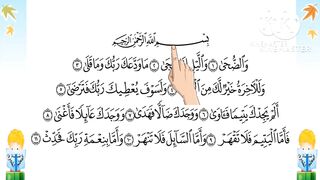 بِسْمِ اللَّهِ الرَّحْمَٰنِ الرَّحِيمِ
وَالضُّحَىٰ ١ وَاللَّيْلِ إِ جَىٰ ٢ مَا وَدَّعَكَ رَبُّكَ وَمَا قَلَىٰ ٣
وَلَلْآخِرَةُ خَيْرٌ لَّكَ مِنَ وَلَسَوْفَ يُعْطِيكَ رَبُّكَ فَتَرْضَىٰ ٥
أَلَمْ يَجِدْكَ يَتِيمًا فَآوَىٰ ٦ وَوَجَدَكَ ضَالًّا فَهَدَىٰ ٧ وَوَجَدَكَ عَائِلًا فَأَغْنَىٰ ٨
فَأَمَّا الْيَتِيمَ فَلَا تَقْهَرْ ٩ وَأَمَّا السَّائِلَ فَلَا تَنْهَرْ ١٠ وَأَمَّا بِنِعْمَةِ رَبِّكَ فَحَدِّثْ ١١